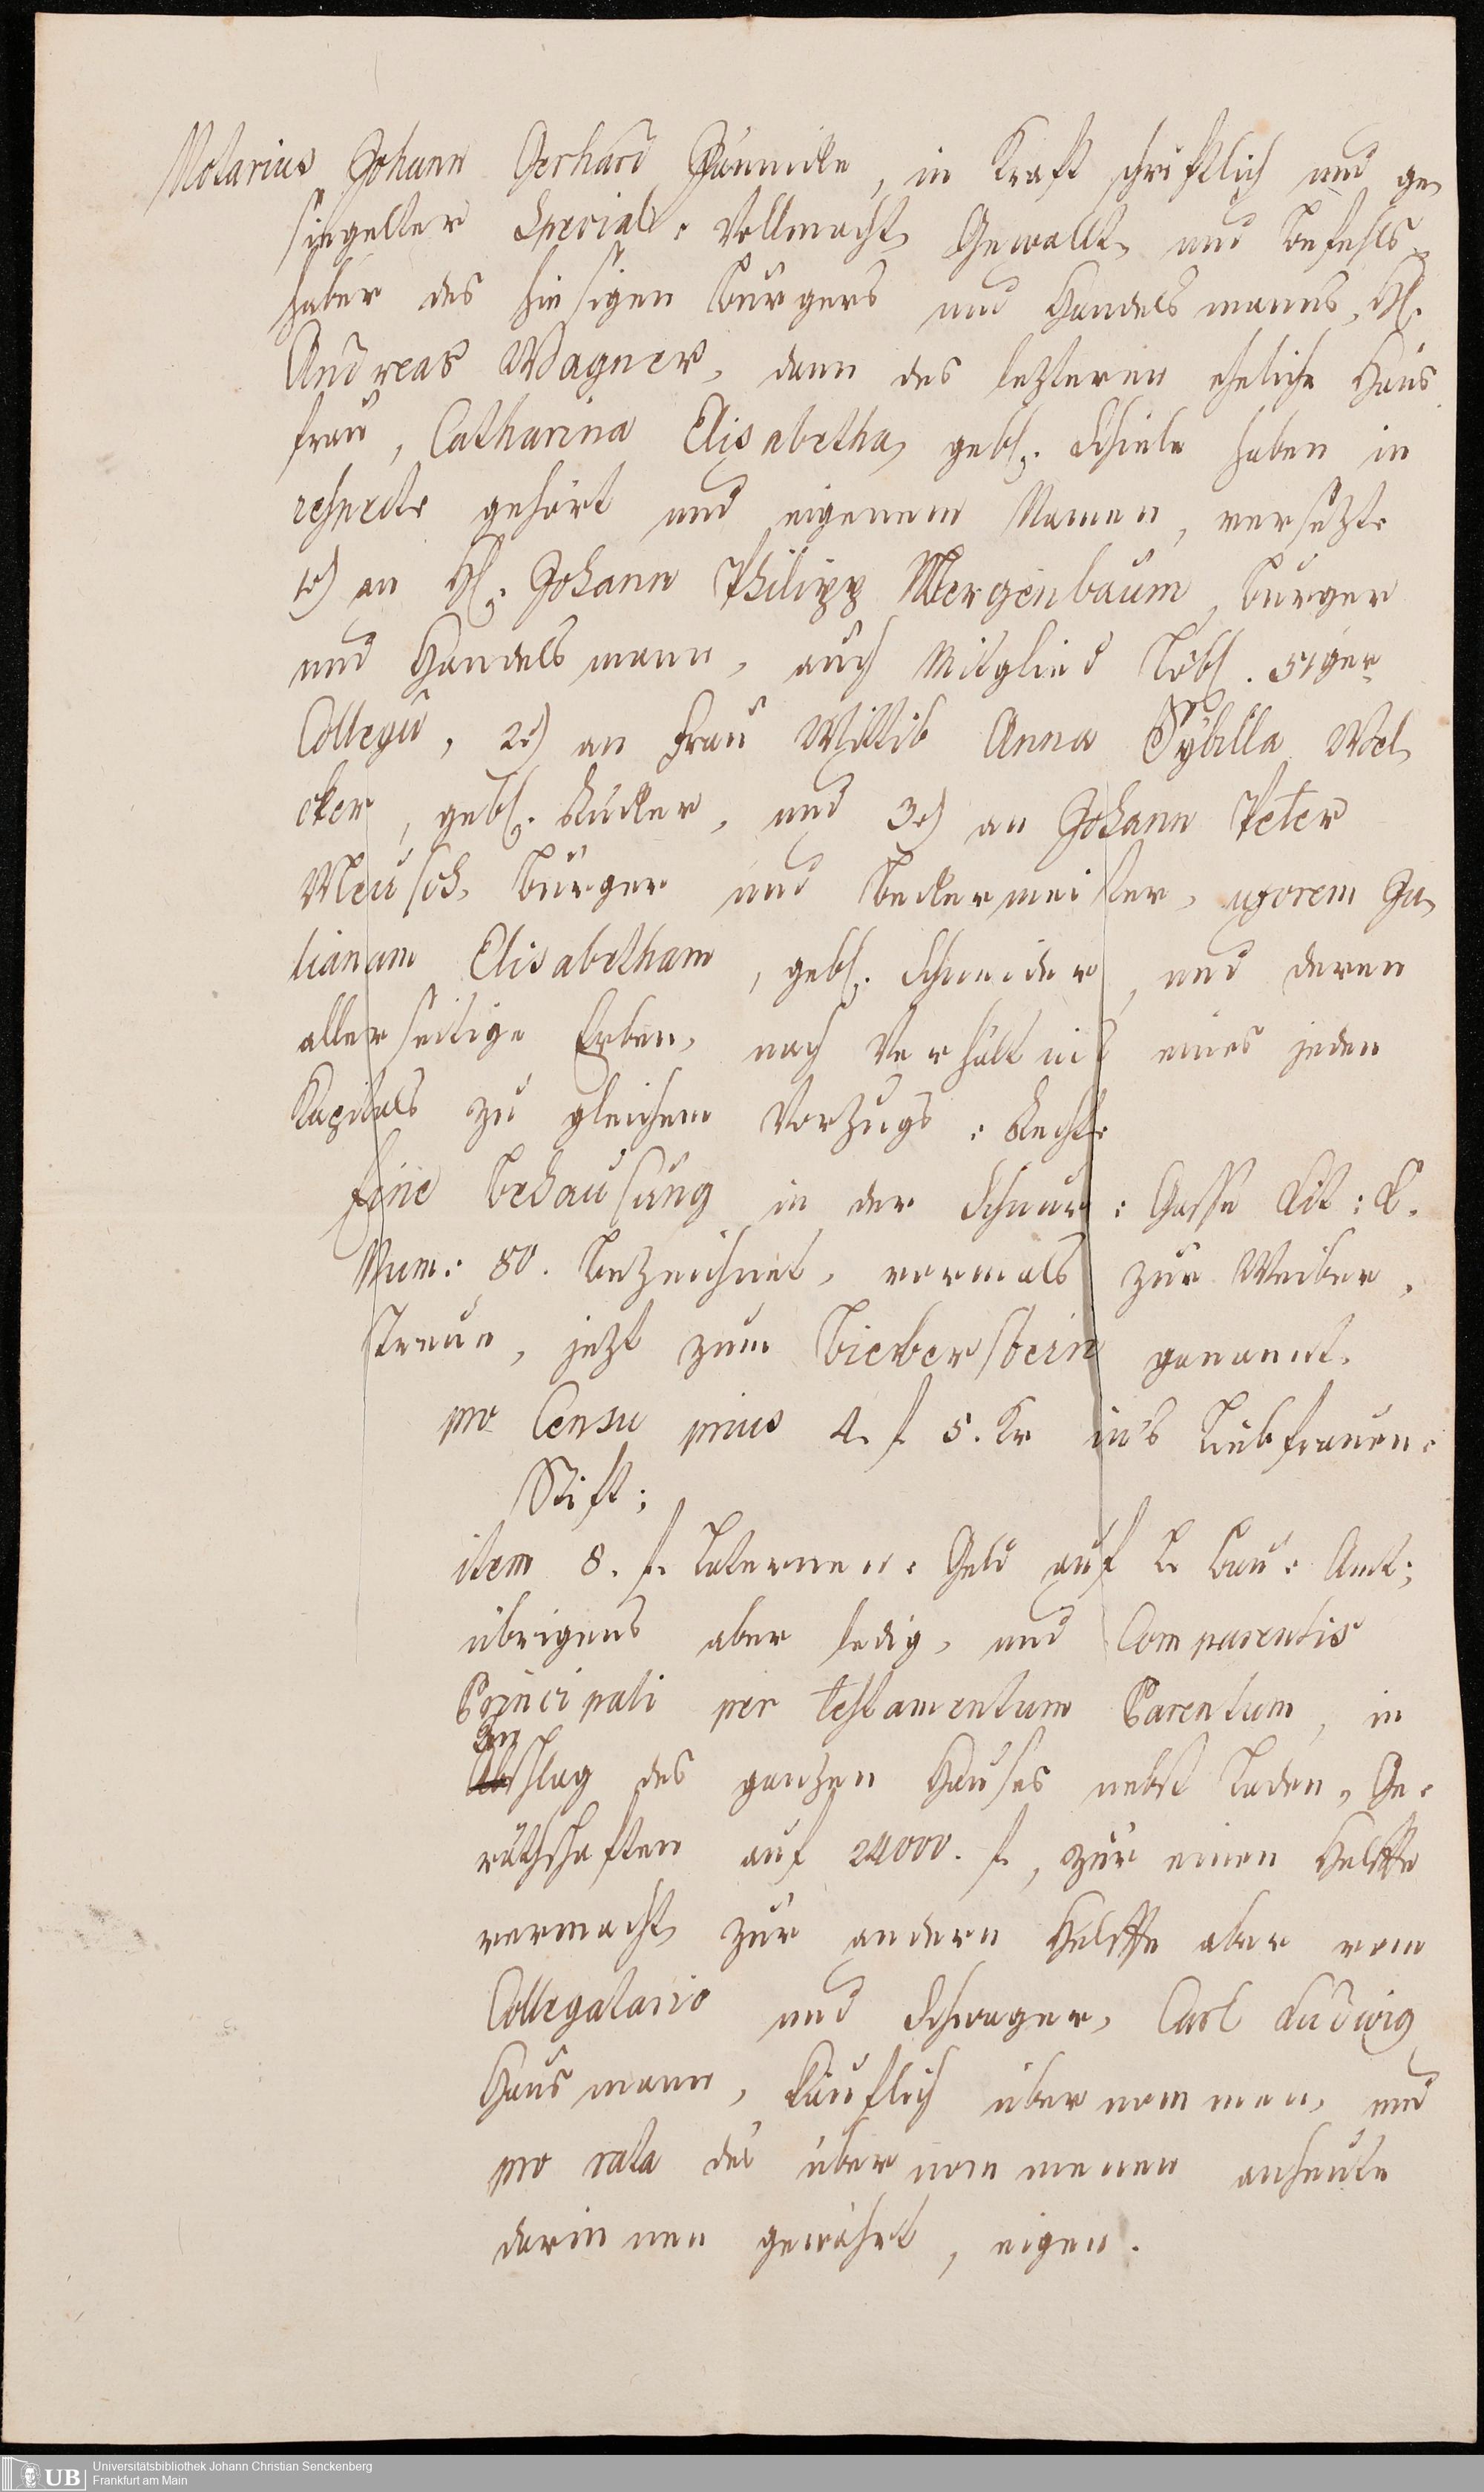 Notarius Johann Gerhard Hünnicke, in Kraft schriftlich und ge„
siegelter Special-Vollmacht Gewallt„ und Befehls„
haber des hiesigen Burgers und Handelsmanns, H.
Andreas Wagner, dann des lezteren eheliche Haus
frau, Catharina Elisabetha, gebh. Schiele haben in
respective gehört und eigenem Namen, versezt
1.) an H. Johann Philipp Mergenbaum, Burger
und Handelsmann, auch Mitglied Löbl. 51ger
Collegii, 2.) an Frau Wittib Anna Sÿbilla Voel„
cker, gebh. Rucker, und 3.) an Johann Peter
Meusch, Burger und Beckermeister, uxorem Ju„
lianam Elisabetham, gebh. Schneider, und deren
allerseitige Erben, nach Verhältnis eines jeden
Kapitals zu gleichem Vorzugs-Recht
Eine Behausung in der Schnur-Gasse Lit: L.
Num: 80. bezeichnet, vormals zur Weiber„
treue, jezt zum Bieberstein genannt.
pro Censu prius 4. f 5. Kr in's Liebfrauen-
Stift;
item 8. f. Laternen-Geld auf L. Bau-Amt;
übrigens aber ledig, und Comparentis
Principali per testamentum Parentum, in
An
schlag des ganzen Hauses nebst Laden-Ge-
räthschaften auf 24000. f., zur einen Helffte
vermacht, zur andern Helffte aber vom
Collegatario und Schwager, Carl Ludwig
Hausmann, käuflich übernommen, und
pro rata des übernommenen anheute
darinnen gewährt, eigen.
UB
Universitätsbibliothek Johann Christian Senckenberg
Frankfurt am Main